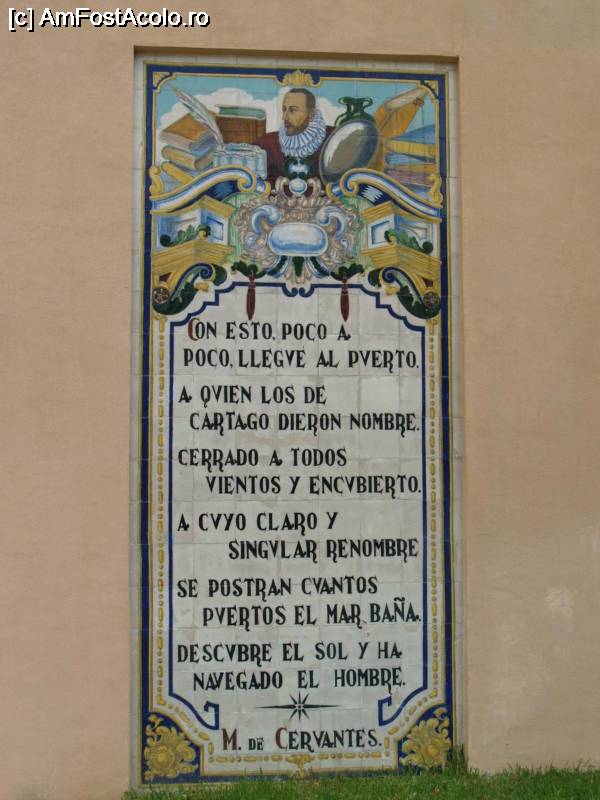 [c] AmFostAcolo.ro
CON ESTO, POCO A
POCO, LLEGVE AL PVERTO.
A QVIEN LOS DE
CARTAGO DIERON NOMBRE.
CERRADO A TODOS
VIENTOS Y ENCVBIERTO.
A CVYO CLARO Y
SINGVLAR RENOMBRE
SE POSTRAN CVANTOS
PVERTOS EL MAR BAÑA.
DESCVBRE EL SOL Y HA
NAVEGADO EL HOMBRE.
M. DE CERVANTES.